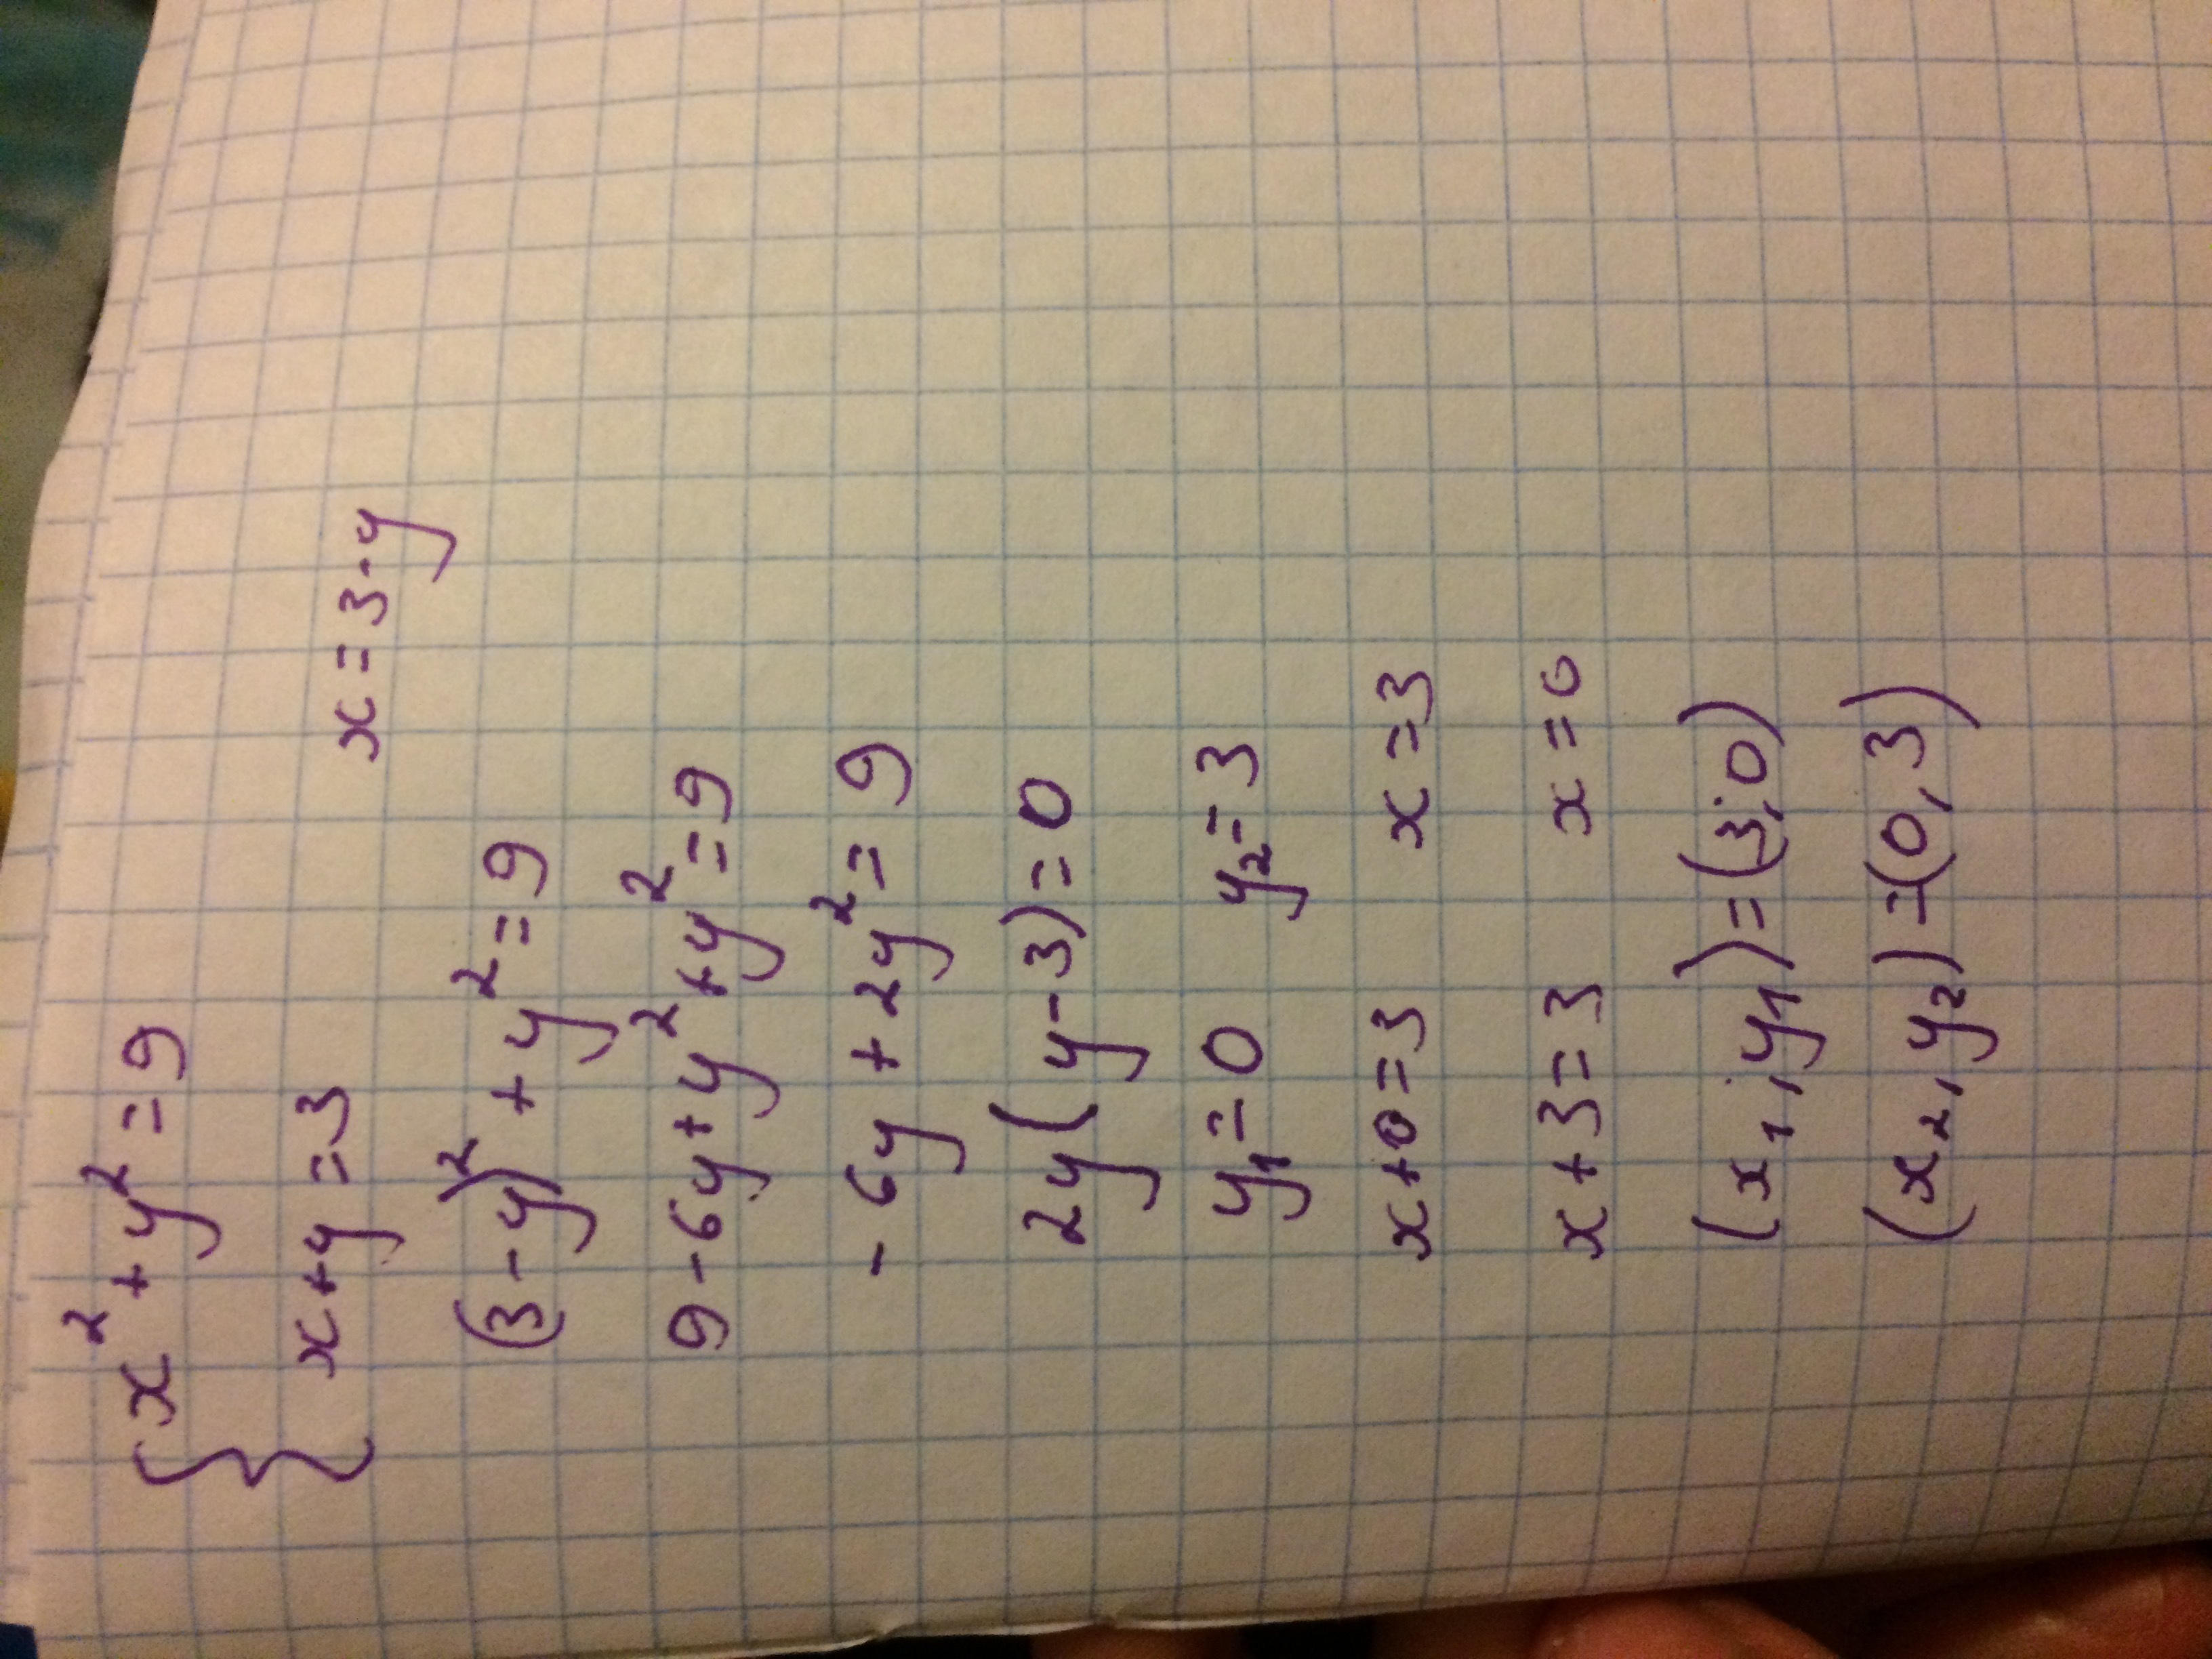 { x² + y² = 9
x + y = 3 x = 3 - y
(3 - y)² + y² = 9
9 - 6y + y² + y² = 9
- 6y + 2y² = 9
2y(y - 3) = 0
y₁ = 0 y₂ = 3
x + 0 = 3 x = 3
x + 3 = 3 x = 0
(x₁; y₁) = (3; 0)
(x₂, y₂) = (0, 3)